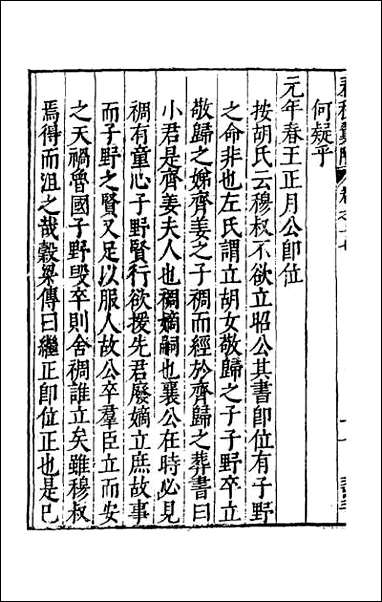 卷之十七
何疑乎
元年春王正月公即位
按胡氏云穆叔不欲立昭公其書即位有子野
之命非也左氏謂立胡女敬歸之子子野卒立
敬歸之娣齊姜之子稠而經於齊歸之葬書曰
小君是齊姜夫人也稠嫡嗣也襄公在時必見
稠有童心子野賢行欲援先君廢嫡立庶故事
而子野之賢又足以服人故公卒羣臣立而安
之天禍魯國子野毀卒則舍稠誰立矣雖穆叔
焉得而沮之哉穀梁傳曰繼正即位正也是已